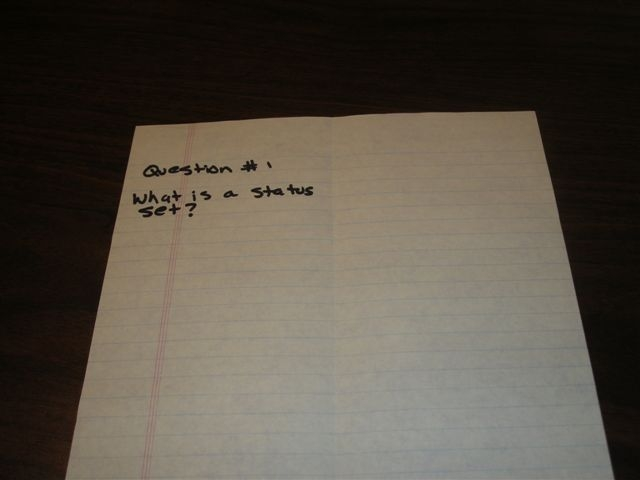 Question #1
What is a status
set?